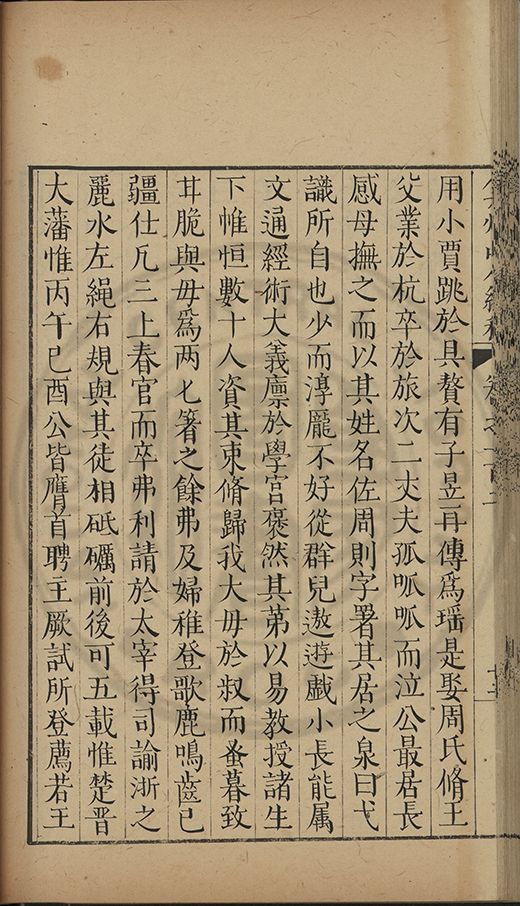 用小賈跳於具贅有子昱再傳爲瑶是娶周氏脩王
父業於杭卒於旅次二丈夫孤呱呱而泣公最居長
感母撫之而以其姓名佐周則字署其居之泉曰弋
識所自也少而淳龎不好從群兒遨遊戲小長能属
文通經術大義廪於學宫褎然其第以易教授諸生
下帷恒數十人資其束脩歸我大母於叔而蚤暮致
其脆與母爲两匕箸之餘弗及婦稚登歌鹿鳴齒已
疆仕凡三上春官而卒弗利請於太宰得司諭浙之
麗水左繩右規與其徒相砥礪前後可五載惟楚晋
大藩惟丙午巳酉公皆膺首聘主厥試所登薦若王